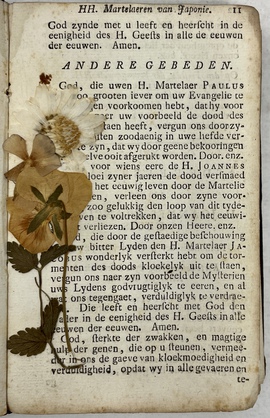 HH. Martelaeren van Japonie. 11
God zynde met u leeft en heerscht in de
eenigheid des H. Geests in alle de eeuwen
der eeuwen. Amen.
ANDERE GEBEDEN.
God, die uwen H. Martelaer PAULUS
zoo grooten iever om uw Evangelie te
en voorkoomen hebt, dat hy voor
er uw voorbeeld de dood des
taen heeft, vergun ons door zy-
unten zoodaenig in uwe liefde verf-
te zyn, dat wy door geene bekooringen
elve ooit afgerukt worden. Door. enz.
voor wiens eere de H. JOANNES
loei zyner jaeren de dood versmaed
het eeuwig leven door de Martelie
en, verleen ons door zyne voor-
zoo gelukkig den loop van dit tyde-
ven te voltrekken, dat wy het eeuwi-
verliezen. Door onzen Heere. enz.
d, die door de gestaedige beschouwing
uw bitter Lyden den H. Martelaer JA-
COBUS wonderlyk versterkt hebt om de tor-
menten des doods kloekelyk uit te staen,
vergun ons naer zyn voorbeeld de Mysterien
uws Lydens godvrugtiglyk te eeren, en al
wat ons tegengaet, verduldiglyk te verdrae-
Die leeft en heerscht met God den
der in de eenigheid des H. Geests in alle
eeuwen der eeuwen. Amen.
God, sterkte der zwakken, en magtige
hulp der genen, die op u steunen, vermee-
der in ons de gaeve van kloekmoedigheid en
verduldigheid, opdat wy in alle gevaeren en
te-